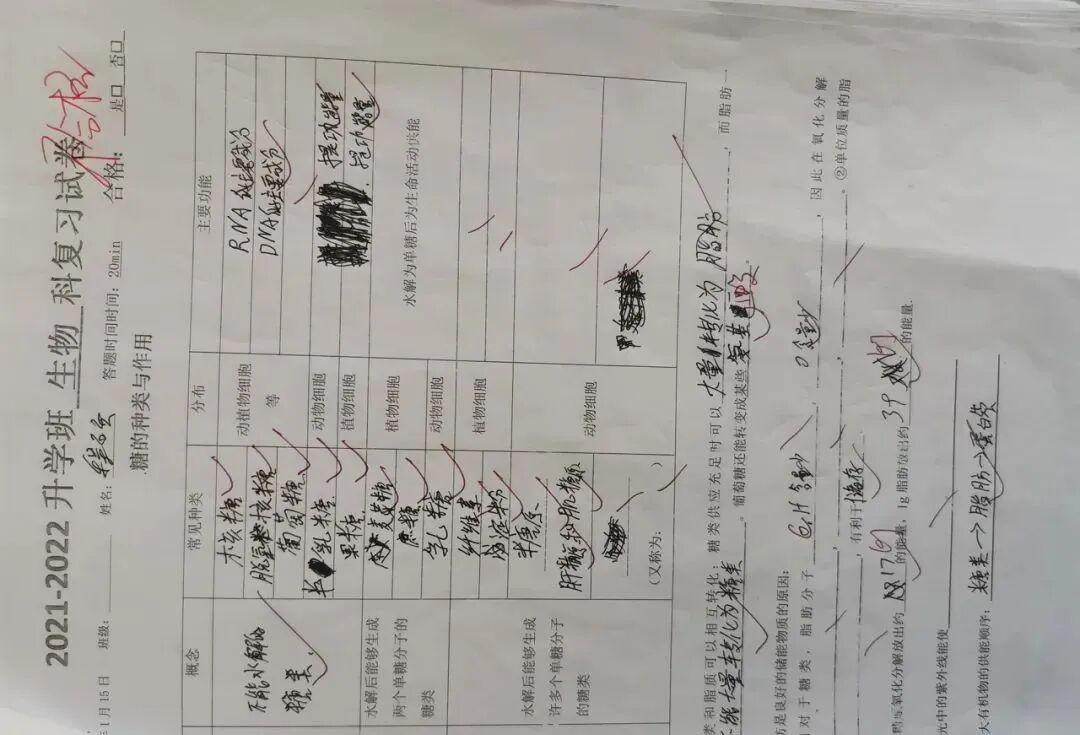 2021-2022 升学班 生物 科复习试卷
合格
月15日 班级： 姓名： 答题时间时间：20min 合格： 是口 否口
糖的种类与作用
概念 常见种类 分布 主要功能
不能水解的糖类
核糖 动植物细胞等 RNA的主要成分
脱氧核糖 DNA的主要成分
葡萄糖
半乳糖 动物细胞 提功能量
果糖 植物细胞 提功能量
水解后能够生成两个单糖分子的糖类
麦芽糖 植物细胞 水解为单糖后为生命活动供能
蔗糖
乳糖 动物细胞
水解后能够生成许多个单糖分子的糖类
纤维素 植物细胞
淀粉
糖原 动物细胞
肝糖原 肌糖原
（又称为： ）
类和脂质可以相互转化：糖类供应充足时可以 大量转化为脂肪 ，而脂肪一
不能大量转化为糖类 。葡萄糖还能转变成某些 氨基酸 。
肪是良好的储能物质的原因：
相对于糖类，脂肪分子 C、H含量多 ， O含量少 ，因此在氧化分解
，有利于 储存 。②单位质量的脂
糖原氧化分解放出约 17kJ 的能量，1g 脂肪放出约 39kJ 的能量
光中的紫外线能使
大有机物的供能顺序： 糖类→脂肪→蛋白质